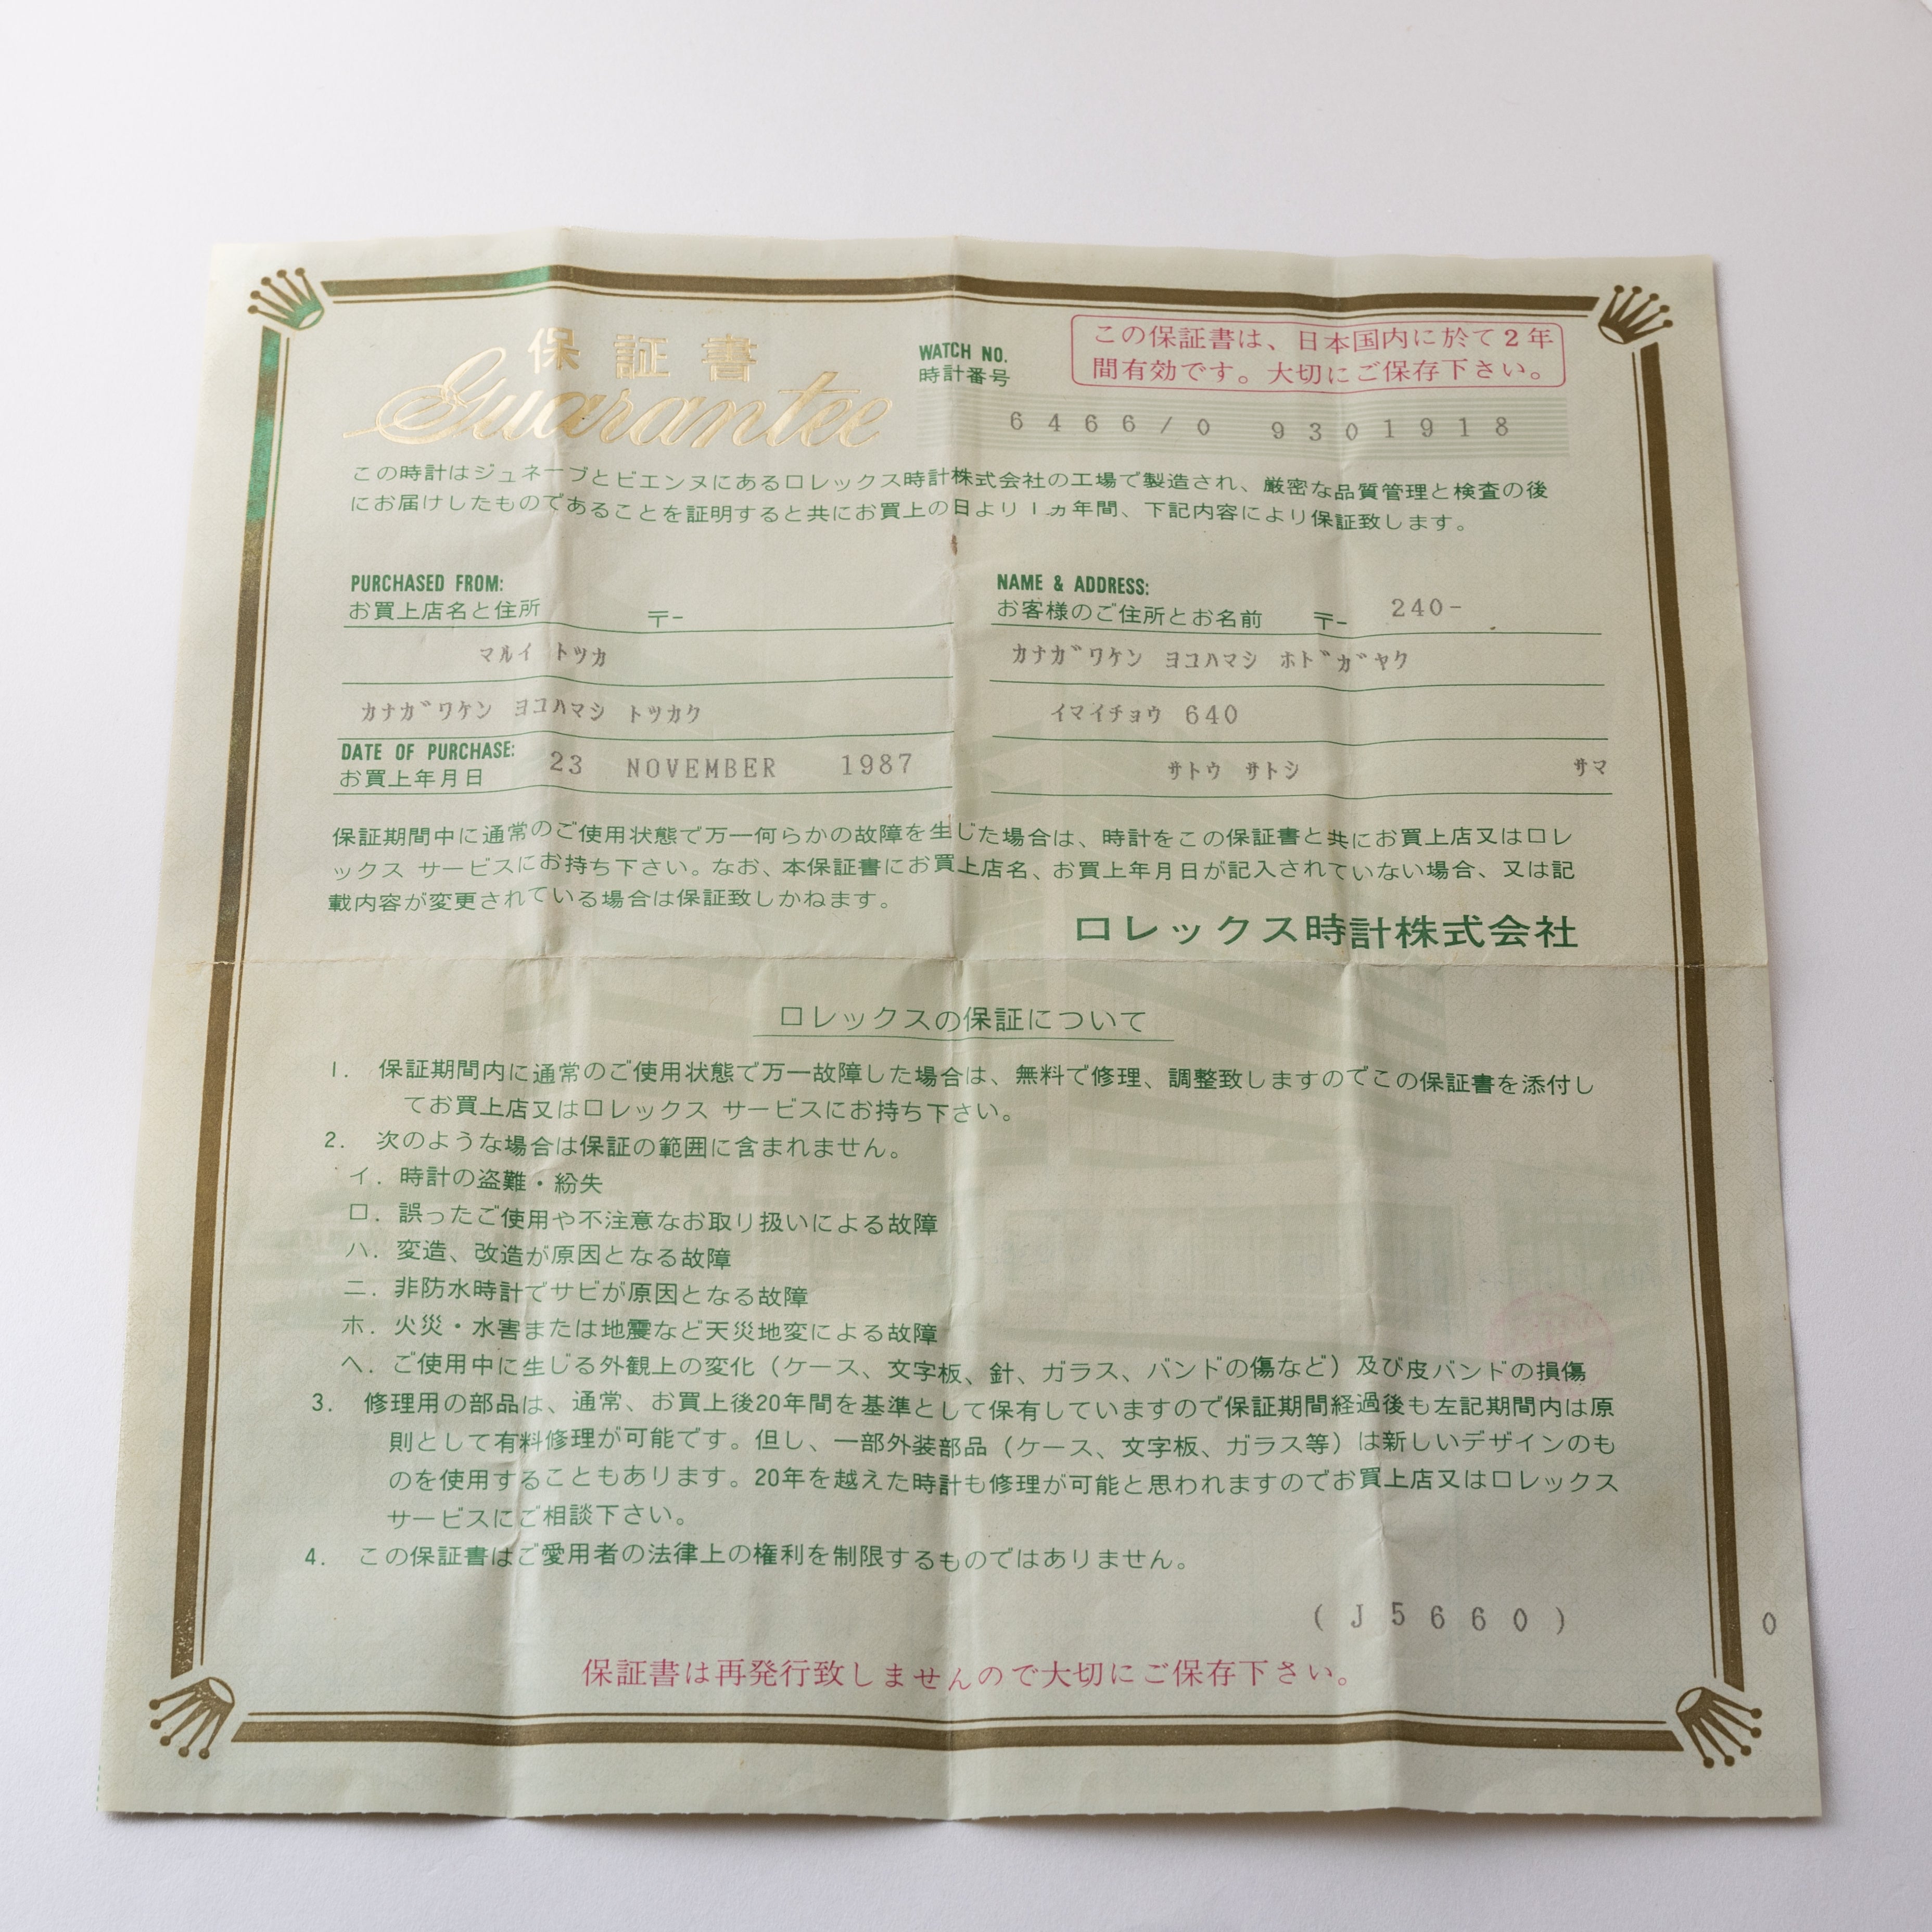 保証書
Guarantee
WATCH NO.
時計番号
この保証書は、日本国内に於て2年
間有効です。大切にご保存下さい。
6466/0 9301918
この時計はジュネーブとビエンヌにあるロレックス時計株式会社の工場で製造され、厳密な品質管理と検査の後
にお届けしたものであることを証明すると共にお買上の日より1ヵ年間、下記内容により保証致します。
PURCHASED FROM:
お買上店名と住所 〒-
マルイ トツカ
カナガワケン ヨコハマシ トツカク
DATE OF PURCHASE:
お買上年月日
23 NOVEMBER 1987
NAME & ADDRESS:
お客様のご住所とお名前 〒- 240-
カナガワケン ヨコハマシ ホドガヤク
イマイチョウ 640
サトウ サトシ サマ
保証期間中に通常のご使用状態で万一何らかの故障を生じた場合は、時計をこの保証書と共にお買上店又はロレ
ックス サービスにお持ち下さい。なお、本保証書にお買上店名、お買上年月日が記入されていない場合、又は記
載内容が変更されている場合は保証致しかねます。
ロレックス時計株式会社
ロレックスの保証について
1. 保証期間内に通常のご使用状態で万一故障した場合は、無料で修理、調整致しますのでこの保証書を添付し
てお買上店又はロレックス サービスにお持ち下さい。
2. 次のような場合は保証の範囲に含まれません。
イ. 時計の盗難・紛失
ロ. 誤ったご使用や不注意なお取り扱いによる故障
ハ. 変造、改造が原因となる故障
ニ. 非防水時計でサビが原因となる故障
ホ. 火災・水害または地震など天災地変による故障
ヘ. ご使用中に生じる外観上の変化（ケース、文字板、針、ガラス、バンドの傷など）及び皮バンドの損傷
3. 修理用の部品は、通常、お買上後20年間を基準として保有していますので保証期間経過後も左記期間内は原
則として有料修理が可能です。但し、一部外装部品（ケース、文字板、ガラス等）は新しいデザインのも
のを使用することもあります。20年を越えた時計も修理が可能と思われますのでお買上店又はロレックス
サービスにご相談下さい。
4. この保証書はご愛用者の法律上の権利を制限するものではありません。
(J5660) 0
保証書は再発行致しませんので大切にご保存下さい。